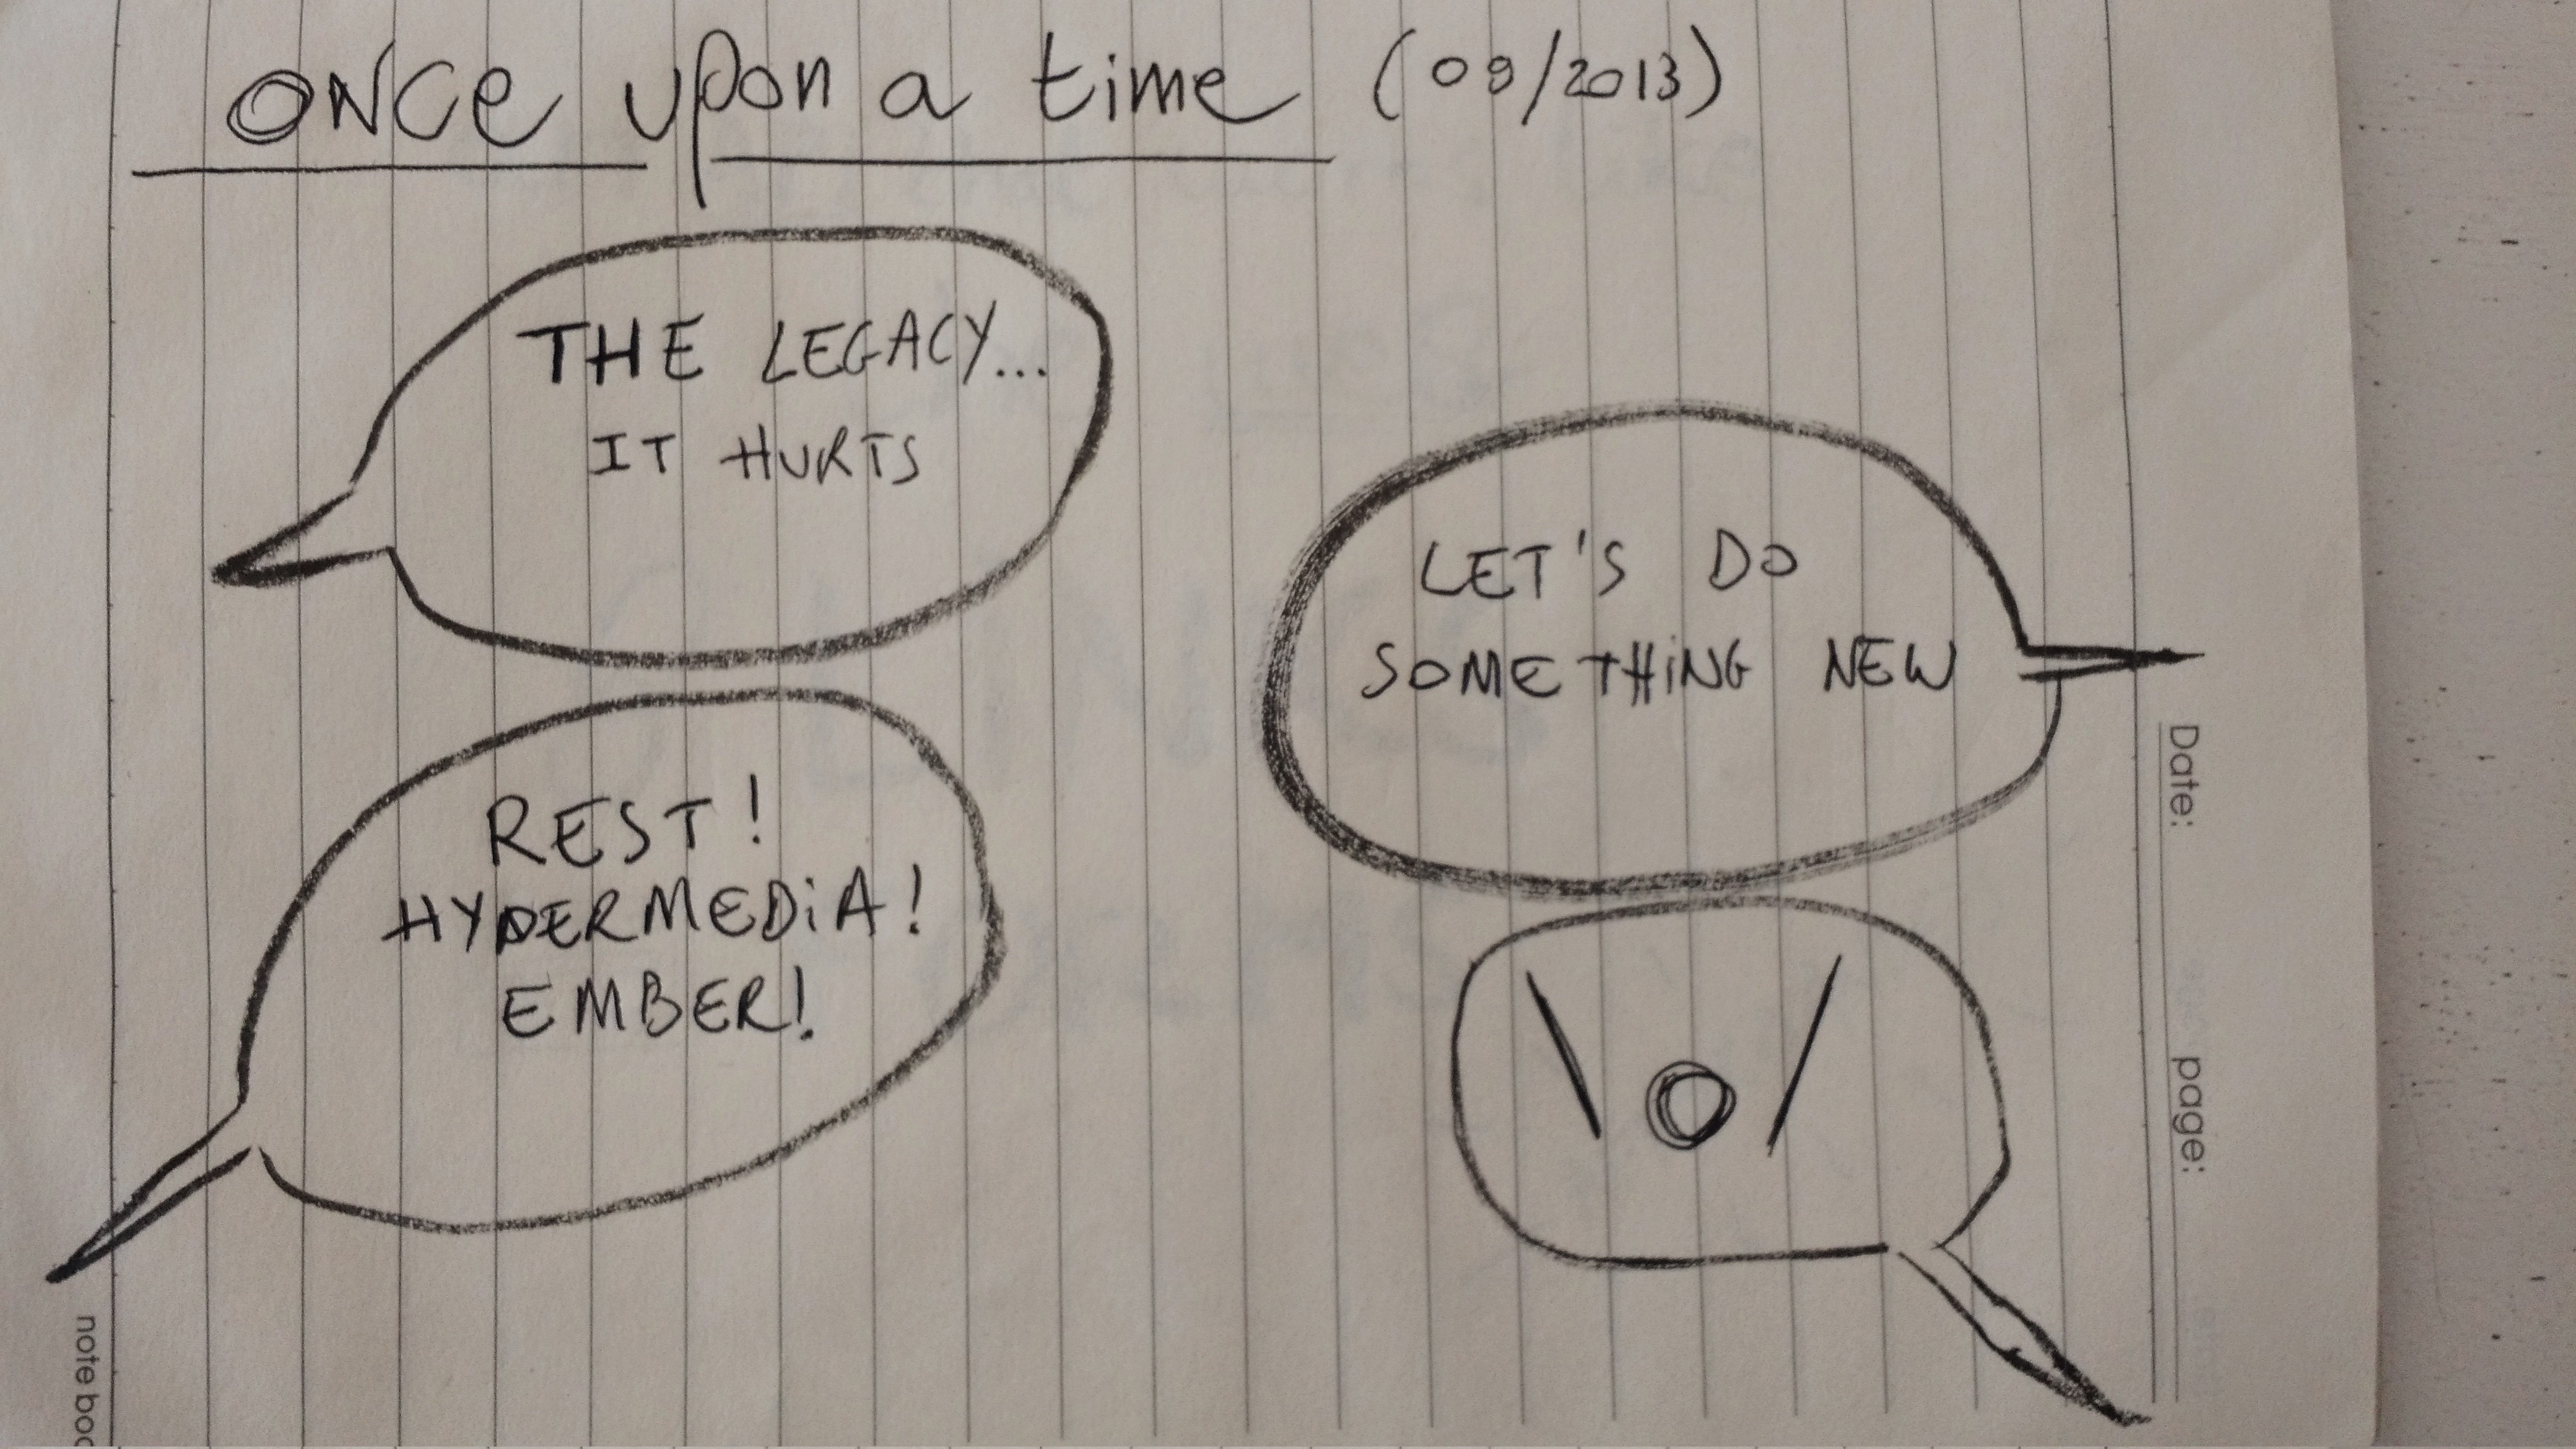 once upon a time (09/2013)
THE LEGACY...
IT HURTS
LET'S DO
SOMETHING NEW
REST!
HYPERMEDIA!
EMBER!
\o/
Date:
page: